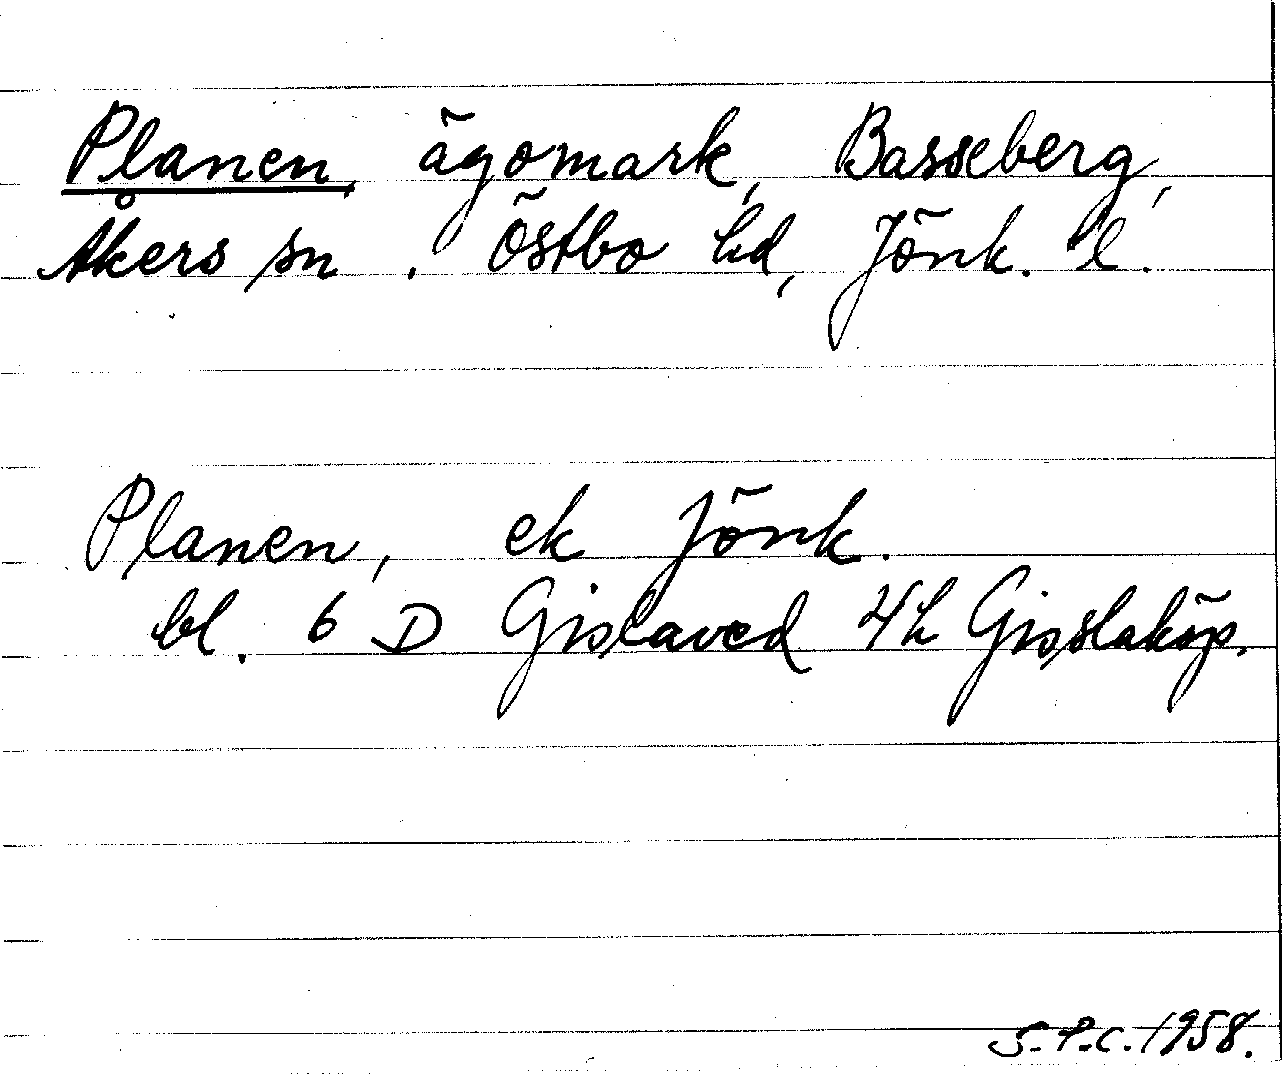 Planen, ägomark, Basseberg,
Åkers sn. Östbo hd, Jönk. l.
Planen, ek Jönk.
bl. 6 D Gislaved 4h Gisslaköp.
S.P.C. 1958.